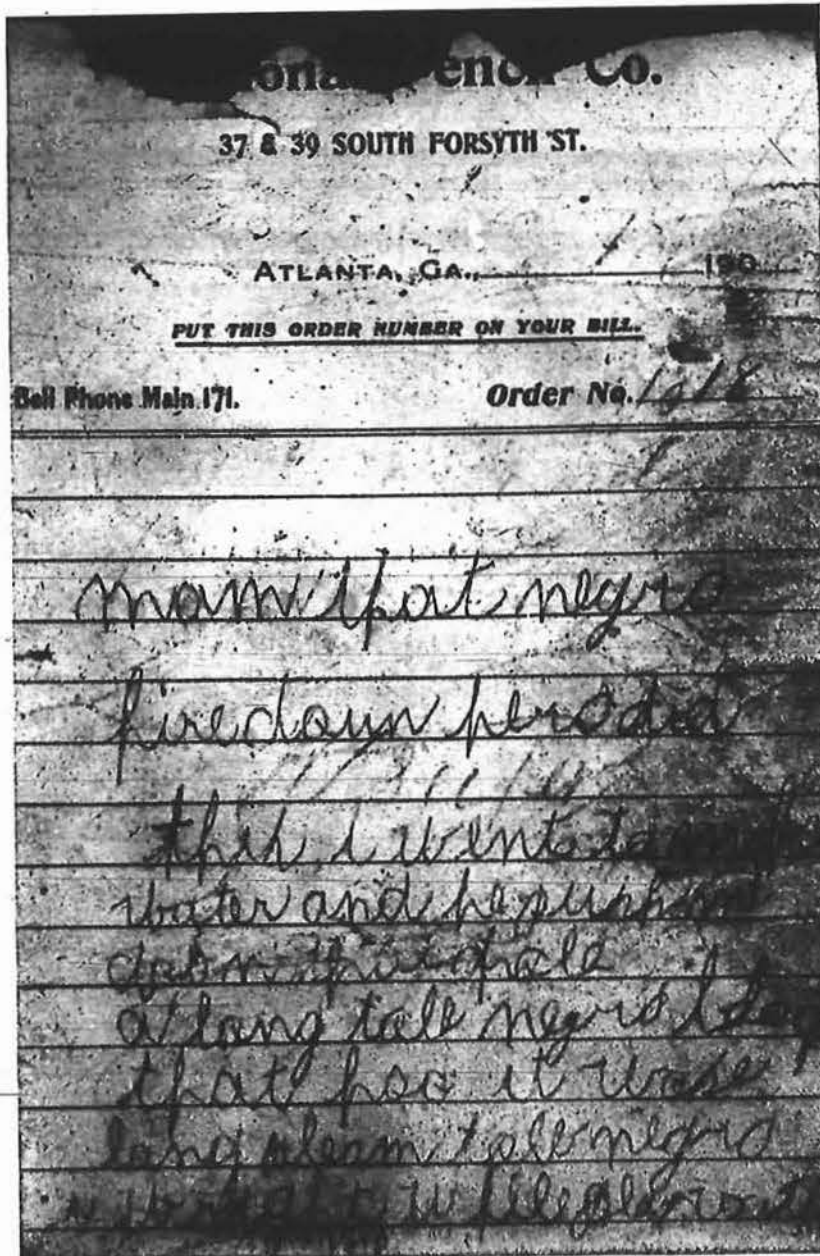 Co.
37 & 39 SOUTH FORSYTH ST.
ATLANTA, GA., 190
PUT THIS ORDER NUMBER ON YOUR BILL.
Bell Phone Main 171.
Order No. 1018
mam that negro
hire doun here did
this i went to
water and he push me
doun that hole
a long tall negro
that hoo it wase
long sleam tall negro
i while play with